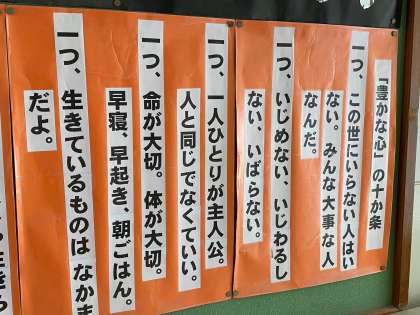 「豊かな心」の十か条
一つ、この世にいらない人はい
ない。みんな大事な人
なんだ。
一つ、いじめない、いじわるし
ない、いばらない。
一つ、一人ひとりが主人公。
人と同じでなくていい。
一つ、命が大切。体が大切。
早寝、早起き、朝ごはん。
一つ、生きているものは なかま
だよ。